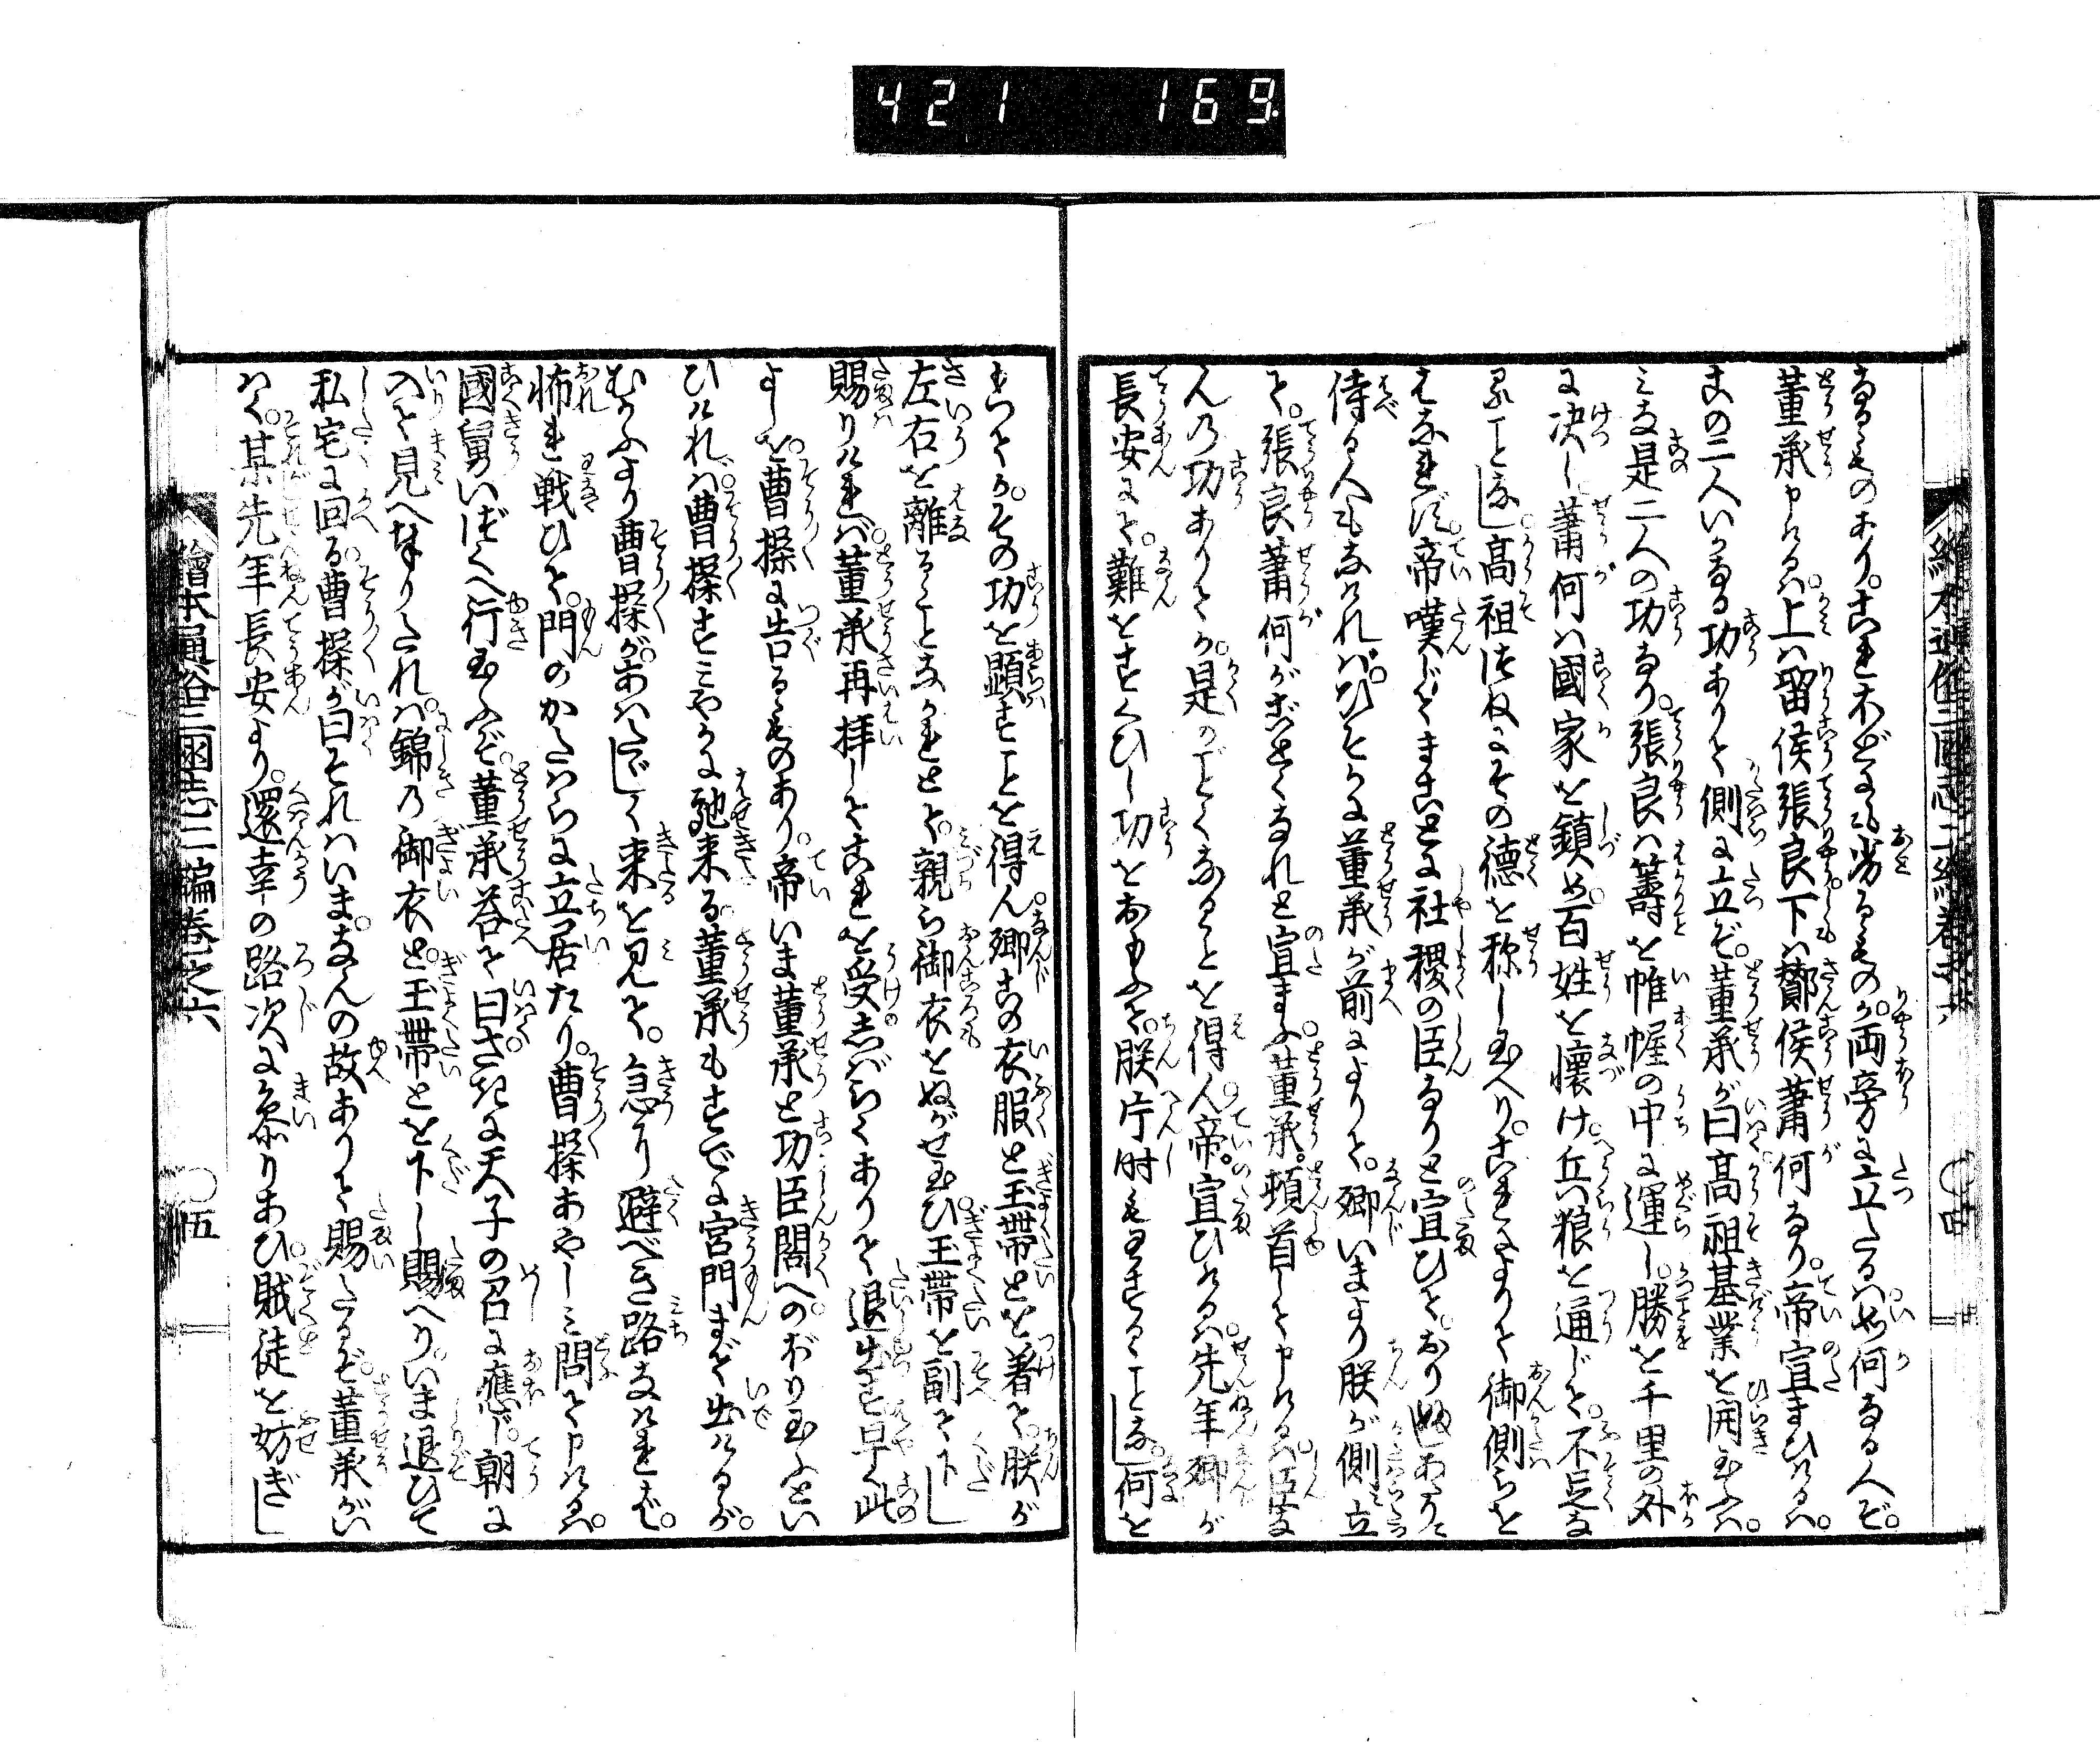 421 169.
繪本通俗三國志二編卷之六 ○四
なるものあり。これ木どにも劣るものか。両旁に立たるハ如何なる人ぞ。
董承申けるハ。上ハ留侯張良下ハ酇侯蕭何なり。帝宣まひけるハ。
この二人いかなる功ありて側に立ぞ。董承が曰高祖基業を開玉ふハ。
みな是二人の功なり。張良ハ籌を帷幄の中に運し。勝を千里の外
に决し蕭何ハ國家を鎮め。百姓を懐け。兵粮を通じて。不足な
高祖つねにその徳を称し玉へり。これによりて御側らを
はなれず。帝嘆じてまことに社稷の臣なりと宣ひて。
侍る人もなけれバ。ひそかに董承が前によりて。卿いまより朕が側に立
て。張良蕭何がごとくなれと宣まふ。董承。頓首して申けるハ。臣な
んの功ありてか。是のごとくなることを得ん。帝。宣ひけるハ。先年卿が
長安にて。難をすくひし功をおもふて。朕片時もわするることなし。何を
もつてか。その功を顕すことを得ん。卿この衣服と玉帯とを着て。朕が
左右を離ることなかれとて。親ら御衣をぬがせ玉ひ。玉帯を副て下し
賜りけれバ董承再拝してこれを受。しばらくありて退出す早く此
よしを。曹操に告るものあり。帝いま董承と功臣閣へのぼり玉ふとい
ひけれバ。曹操すミやかに馳来る。董承もすでに宮門まで出けるが。
むかふより曹操が。あハたゞしく来を見て。急に避べき路なけれバ。
怖れ戦ひて。門のかたハらに立居たり。曹操あやしミ問て申けるハ。
國舅いづくへ行玉ふぞ。董承答て曰さきに天子の召に應じ。朝に
入て見へ奉りたれバ。錦の御衣と。玉帯とを下し賜へり。いま退ひて
私宅に回る。曹操が曰それハいま。なんの故ありて賜たるぞ。董承がい
ハく。某先年長安より。還幸の路次に参りあひ。賊徒を妨ぎし
繪本通俗三國志二編卷之六 ○五